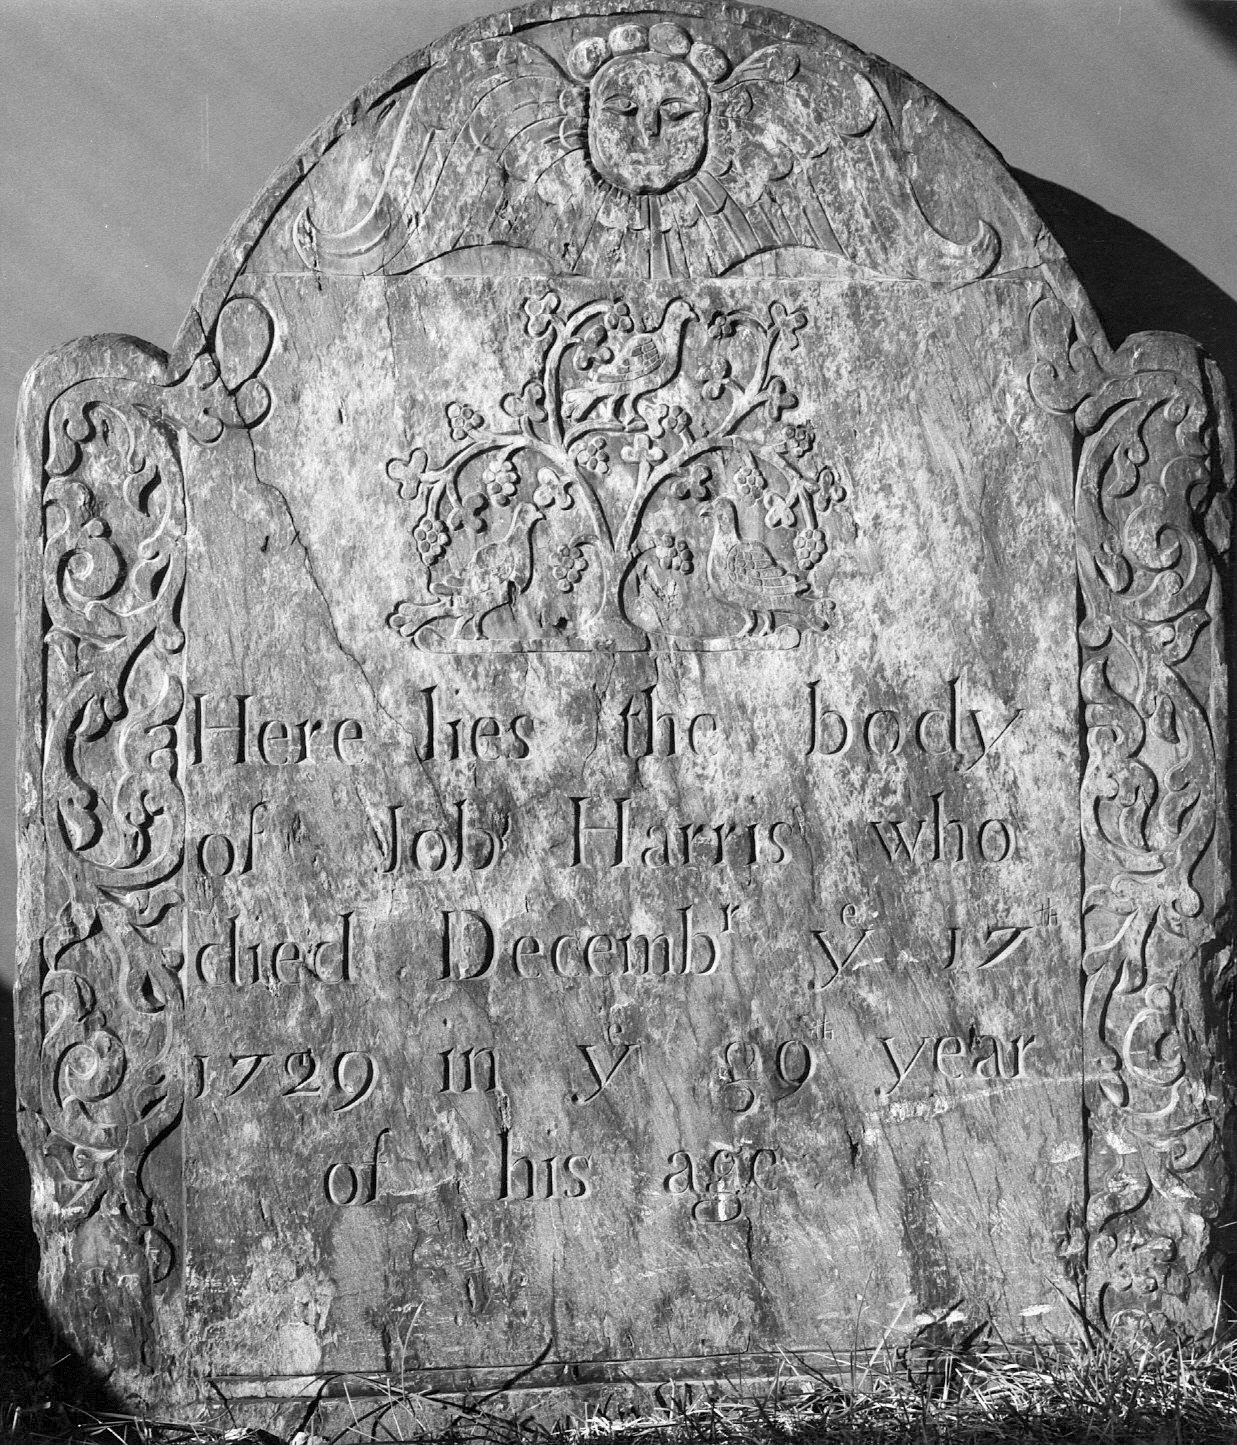 Here lies the body
of Job Harris who
died Decembr yᵉ 17ᵗʰ
1729 in yᵉ 80ᵗʰ year
of his age